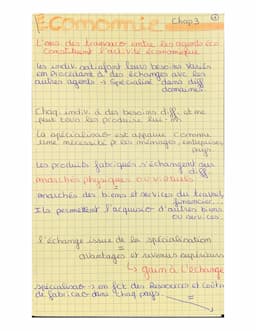 Economie Chap 3
L'ens des transac° entre les agents éco
constituent l'activité économique.
Les indiv satisfont leurs besoins variés
en procédant à des échanges avec les
autres agents → spécialisé dans diff
domaines.
Chaq indiv. a des besoins diff. et ne
peut tous les produire lui-m
La spécialisa° est apparue comme
une nécessité pr les ménages, entreprises
pays.
Les produits fabriqués s'échangent sur
diff
marchés physiques ou virtuels
=
marchés des biens et services du travail,
financier...
Ils permettent l'acquisi° d'autres biens
ou services.
l'échange issue de la spécialisation
=
avantages et revenus supérieurs
↳ gain à l'échange
spécialisa° → en fct des Ressources et Coûts
de fabrica° dans chaq pays.